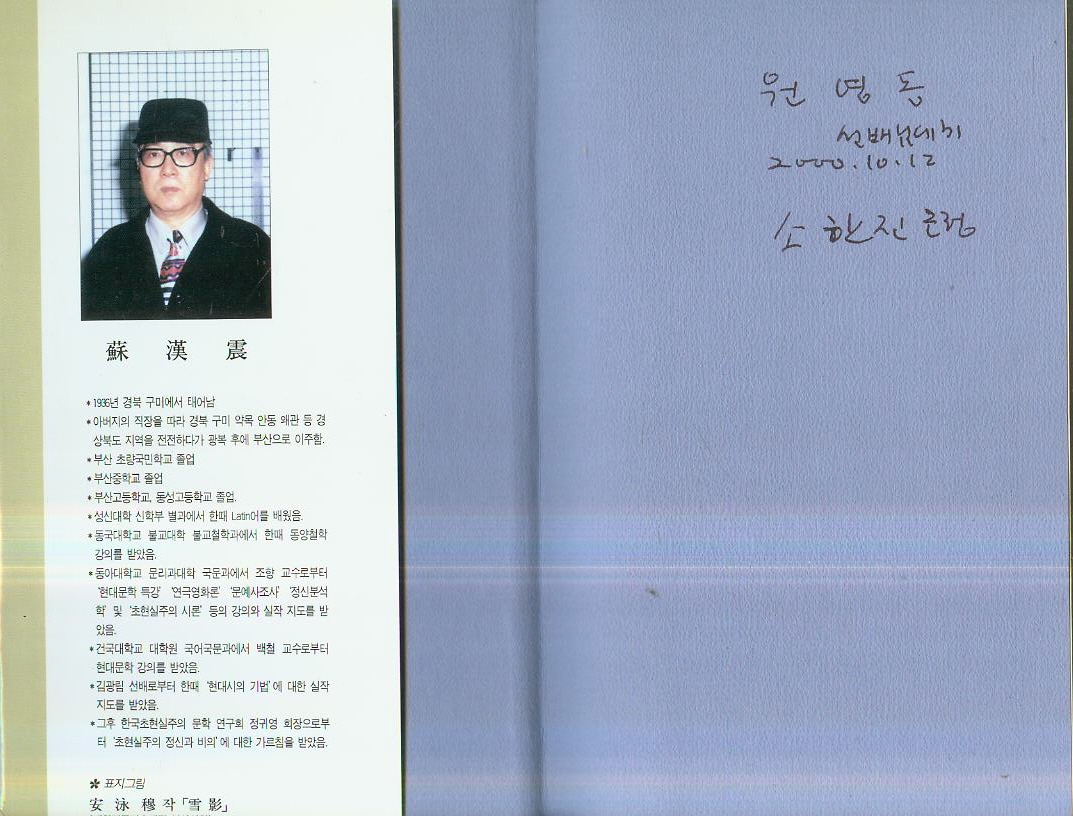 蘇 漢 震
* 1936년 경북 구미에서 태어남
* 아버지의 직장을 따라 경북 구미 약목 안동 왜관 등 경
상북도 지역을 전전하다가 광복 후에 부산으로 이주함.
* 부산 초량국민학교 졸업
* 부산중학교 졸업
* 부산고등학교, 동성고등학교 졸업.
* 성신대학 신학부 별과에서 한때 Latin어를 배웠음.
* 동국대학교 불교대학 불교철학과에서 한때 동양철학
강의를 받았음.
* 동아대학교 문리과대학 국문과에서 조향 교수로부터
'현대문학 특강' '연극영화론' '문예사조사' '정신분석
학' 및 '초현실주의 시론' 등의 강의와 실작 지도를 받
았음.
* 건국대학교 대학원 국어국문과에서 백철 교수로부터
현대문학 강의를 받았음.
* 김광림 선배로부터 한때 '현대시의 기법'에 대한 실작
지도를 받았음.
* 그후 한국초현실주의 문학 연구회 정귀영 회장으로부
터 '초현실주의 정신과 비의'에 대한 가르침을 받았음.
✽ 표지그림
安 泳 穆 작「雪 影」
원 영 동
선배님께
2000.10.12
소 한 진 드림